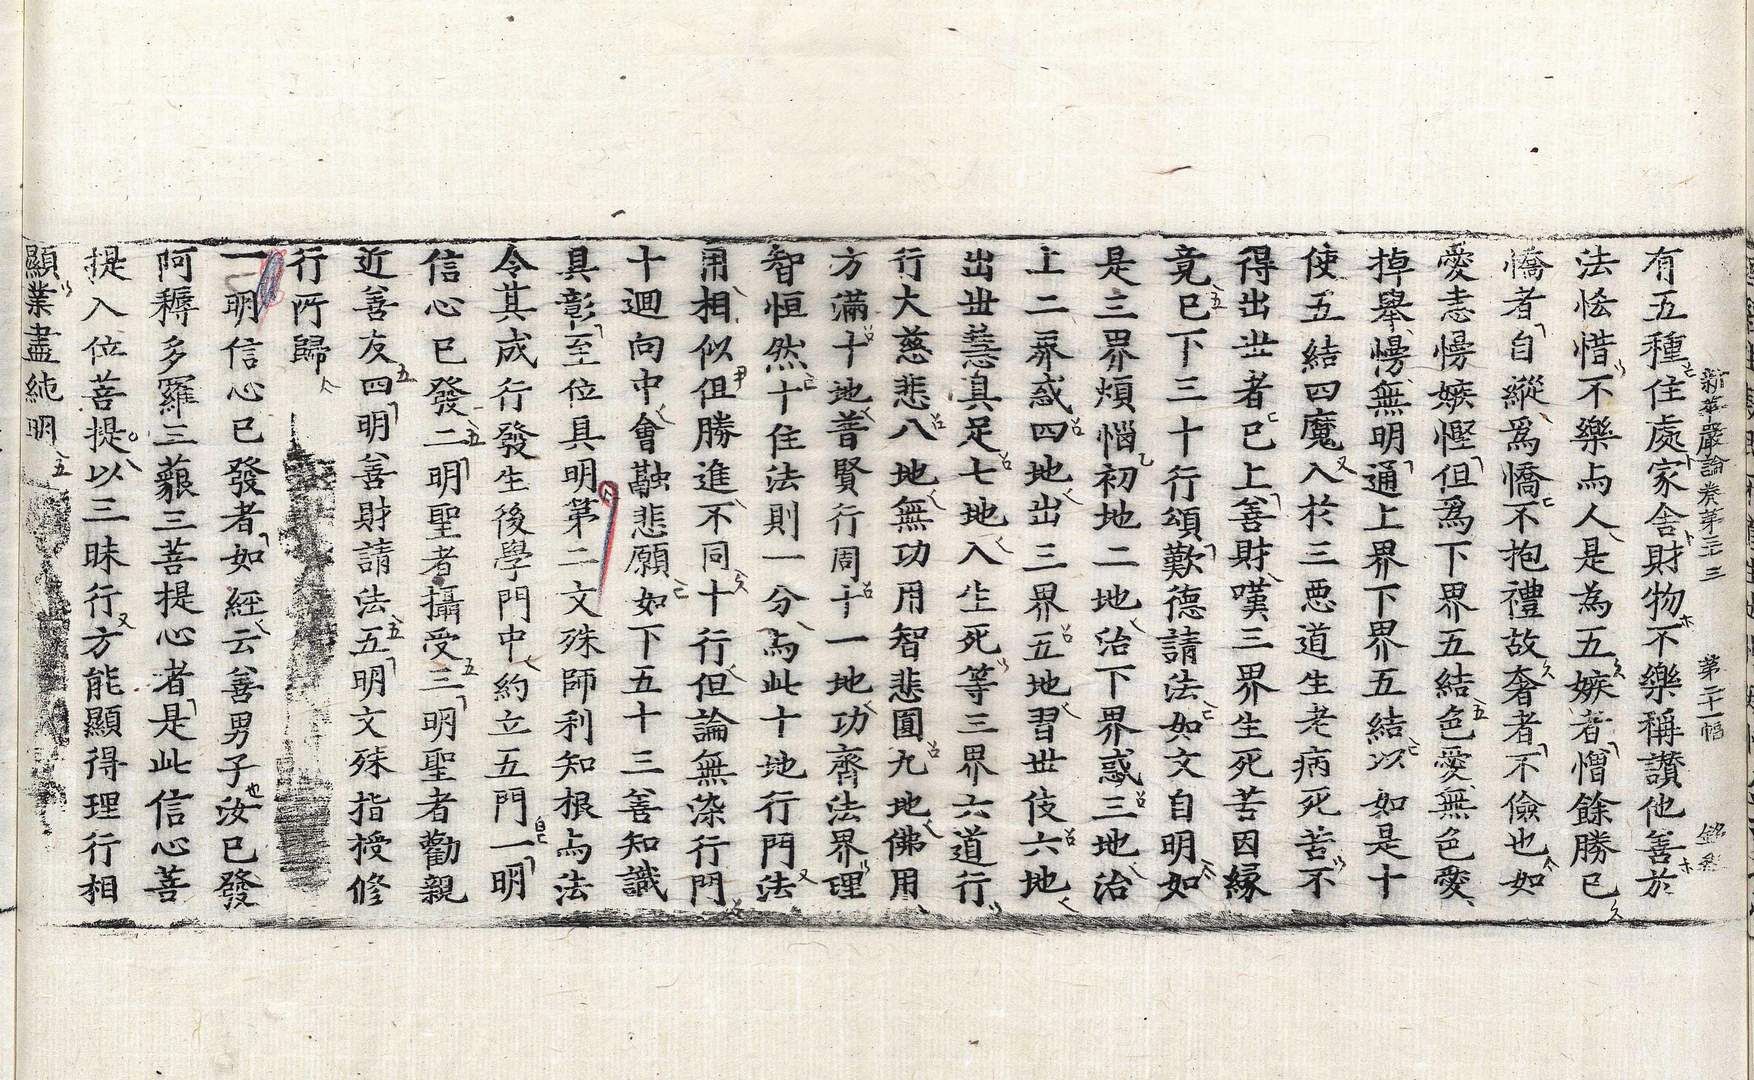 新華嚴論卷第三十三 第二十一幅
有五種住處家舍財物不樂稱讚他善於
法悋惜不樂与人是為五嫉者憎餘勝已
憍者自縱爲憍不抱禮故奢者不儉也如
愛恚慢嫉慳但爲下界五結色愛無色愛
掉舉慢無明通上界下界五結以如是十
使五結四魔入於三惡道生老病死苦不
得出世者已上善財嘆三界生死苦因緣
竟已下三十行頌歎德請法如文自明如
是三界煩惱初地二地治下界惑三地治
上二界惑四地出三界五地習世伎六地
出世慧具足七地入生死等三界六道行
行大慈悲八地無功用智悲圓九地佛用
方滿十地普賢行周十一地功齊法界理
智恒然十住法則一分与此十地行門法
用相似但勝進不同十行但論無染行門
十迴向中會融悲願如下五十三善知識
具彰至位具明第二文殊師利知根与法
令其成行發生後學門中約立五門一明
信心已發二明聖者攝受三明聖者勸親
近善友四明善財請法五明文殊指授修
行所歸
一明信心已發者如經云善男子汝已發
阿耨多羅三藐三菩提心者是此信心菩
提入位菩提以三昧行方能顯得理行相
顯業盡純明